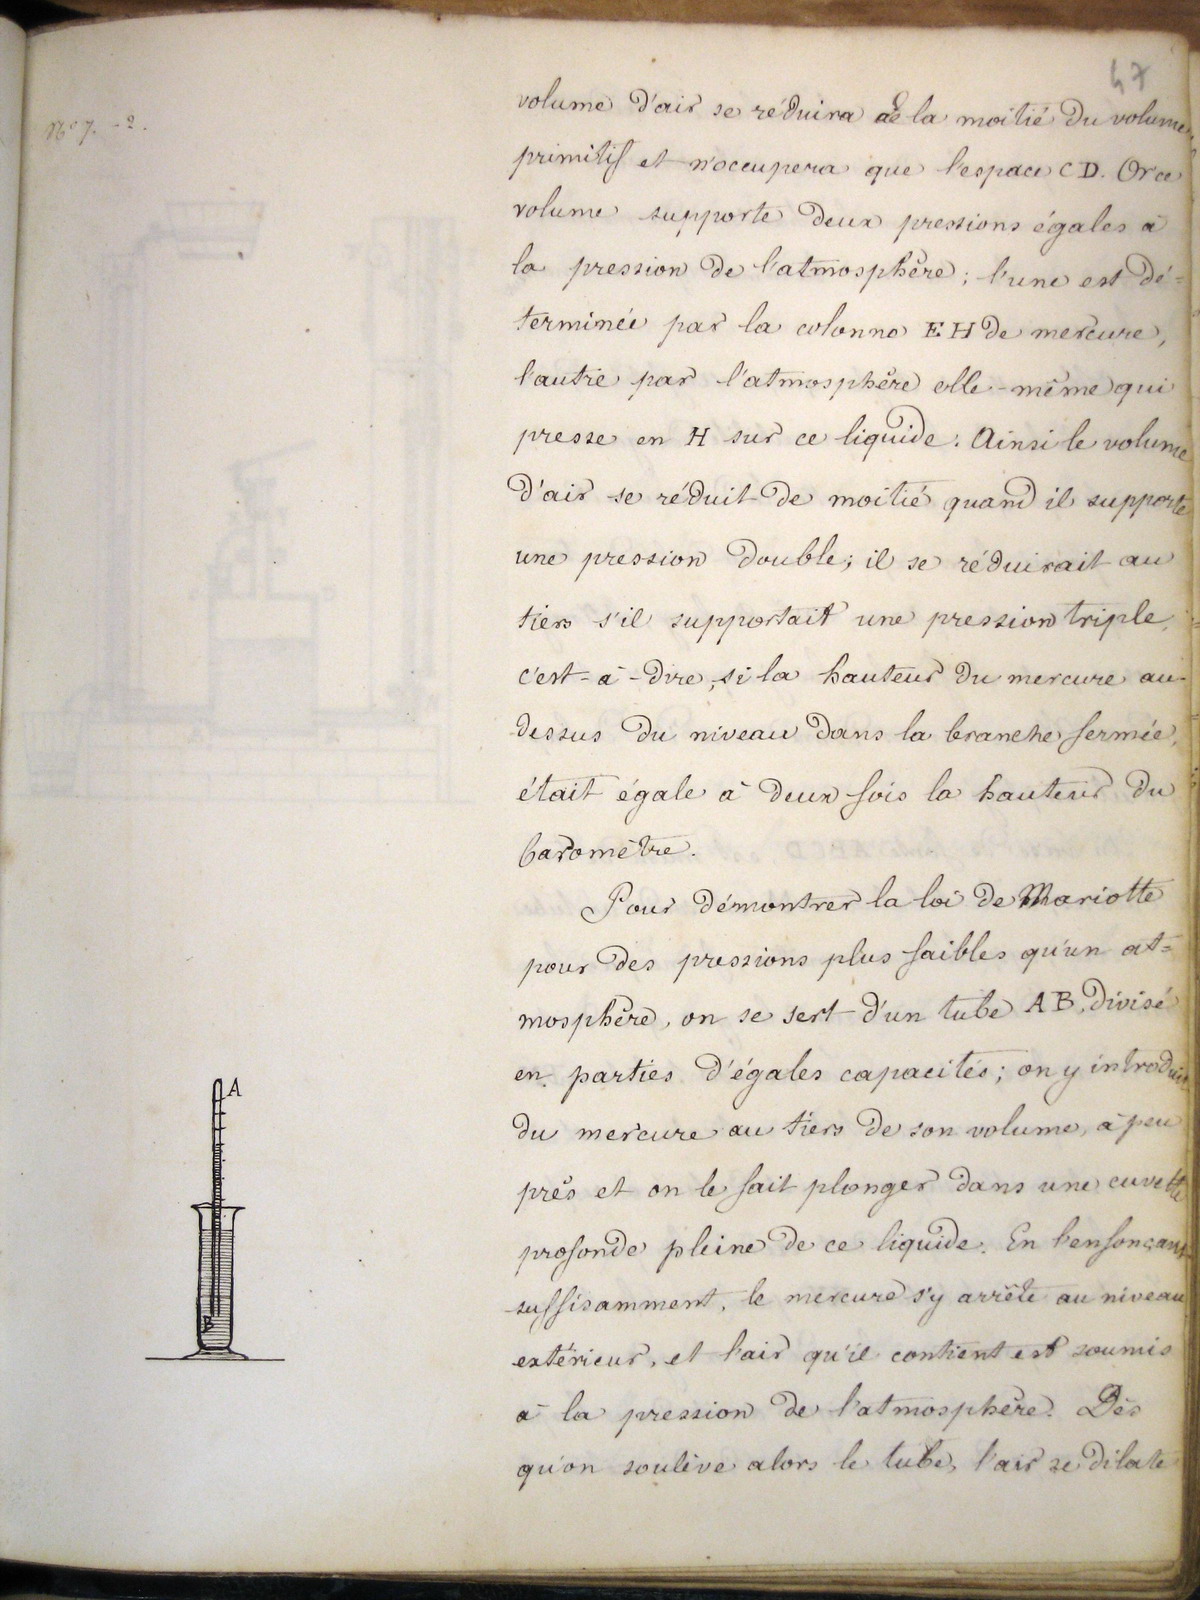 47
N° 7. - 2.
volume d'air se réduira de la moitié du volume
primitif et n'occupera que l'espace CD. Or ce
volume supporte deux pressions égales à
la pression de l'atmosphère; l'une est dé=
terminée par la colonne EH de mercure,
l'autre par l'atmosphère elle-même qui
presse en H sur ce liquide. Ainsi le volume
d'air se réduit de moitié quand il supporte
une pression double; il se réduirait au
tiers s'il supportait une pression triple,
c'est-à-dire, si la hauteur du mercure au-
dessus du niveau dans la branche fermée,
était égale à deux fois la hauteur du
baromètre.
Pour démontrer la loi de Mariotte
pour des pressions plus faibles qu'un at=
mosphère, on se sert d'un tube AB, divisé
en parties d'égales capacités; on y introduit
du mercure au tiers de son volume, à peu
près et on le fait plonger dans une cuvette
profonde pleine de ce liquide. En l'enfonçant
suffisamment, le mercure s'y arrête au niveau
extérieur, et l'air qu'il contient est soumis
à la pression de l'atmosphère. Dès
qu'on soulève alors le tube, l'air se dilate
A
B